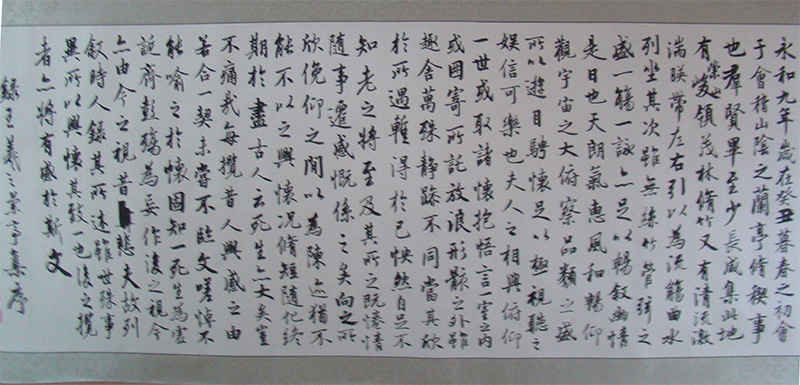 永和九年歲在癸丑暮春之初會
于會稽山陰之蘭亭脩稧事
也羣賢畢至少長咸集此地
有崇山峻領茂林脩竹又有清流激
湍暎帶左右引以為流觴曲水
列坐其次雖無絲竹管弦之
盛一觴一詠亦足以暢叙幽情
是日也天朗氣惠風和暢仰
觀宇宙之大俯察品類之盛
所以遊目騁懷足以極視聽之
娛信可樂也夫人之相與俯仰
一世或取諸懷抱悟言一室之內
或因寄所託放浪形骸之外雖
趣舍萬殊静躁不同當其欣
於所遇暫得於己怏然自足不
知老之將至及其所之既惓情
隨事遷感慨係之矣向之所
欣俛仰之間以為陳迹猶不
能不以之興懷況脩短隨化終
期於盡古人云死生亦大矣豈
不痛哉每攬昔人興感之由
若合一契未嘗不臨文嗟悼不
能喻之於懷固知一死生為虛
誕齊彭殤為妄作後之視今
亦由今之視昔悲夫故列
叙時人錄其所述雖世殊事
異所以興懷其致一也後之攬
者亦將有感於斯文
錄王羲之蘭亭集序